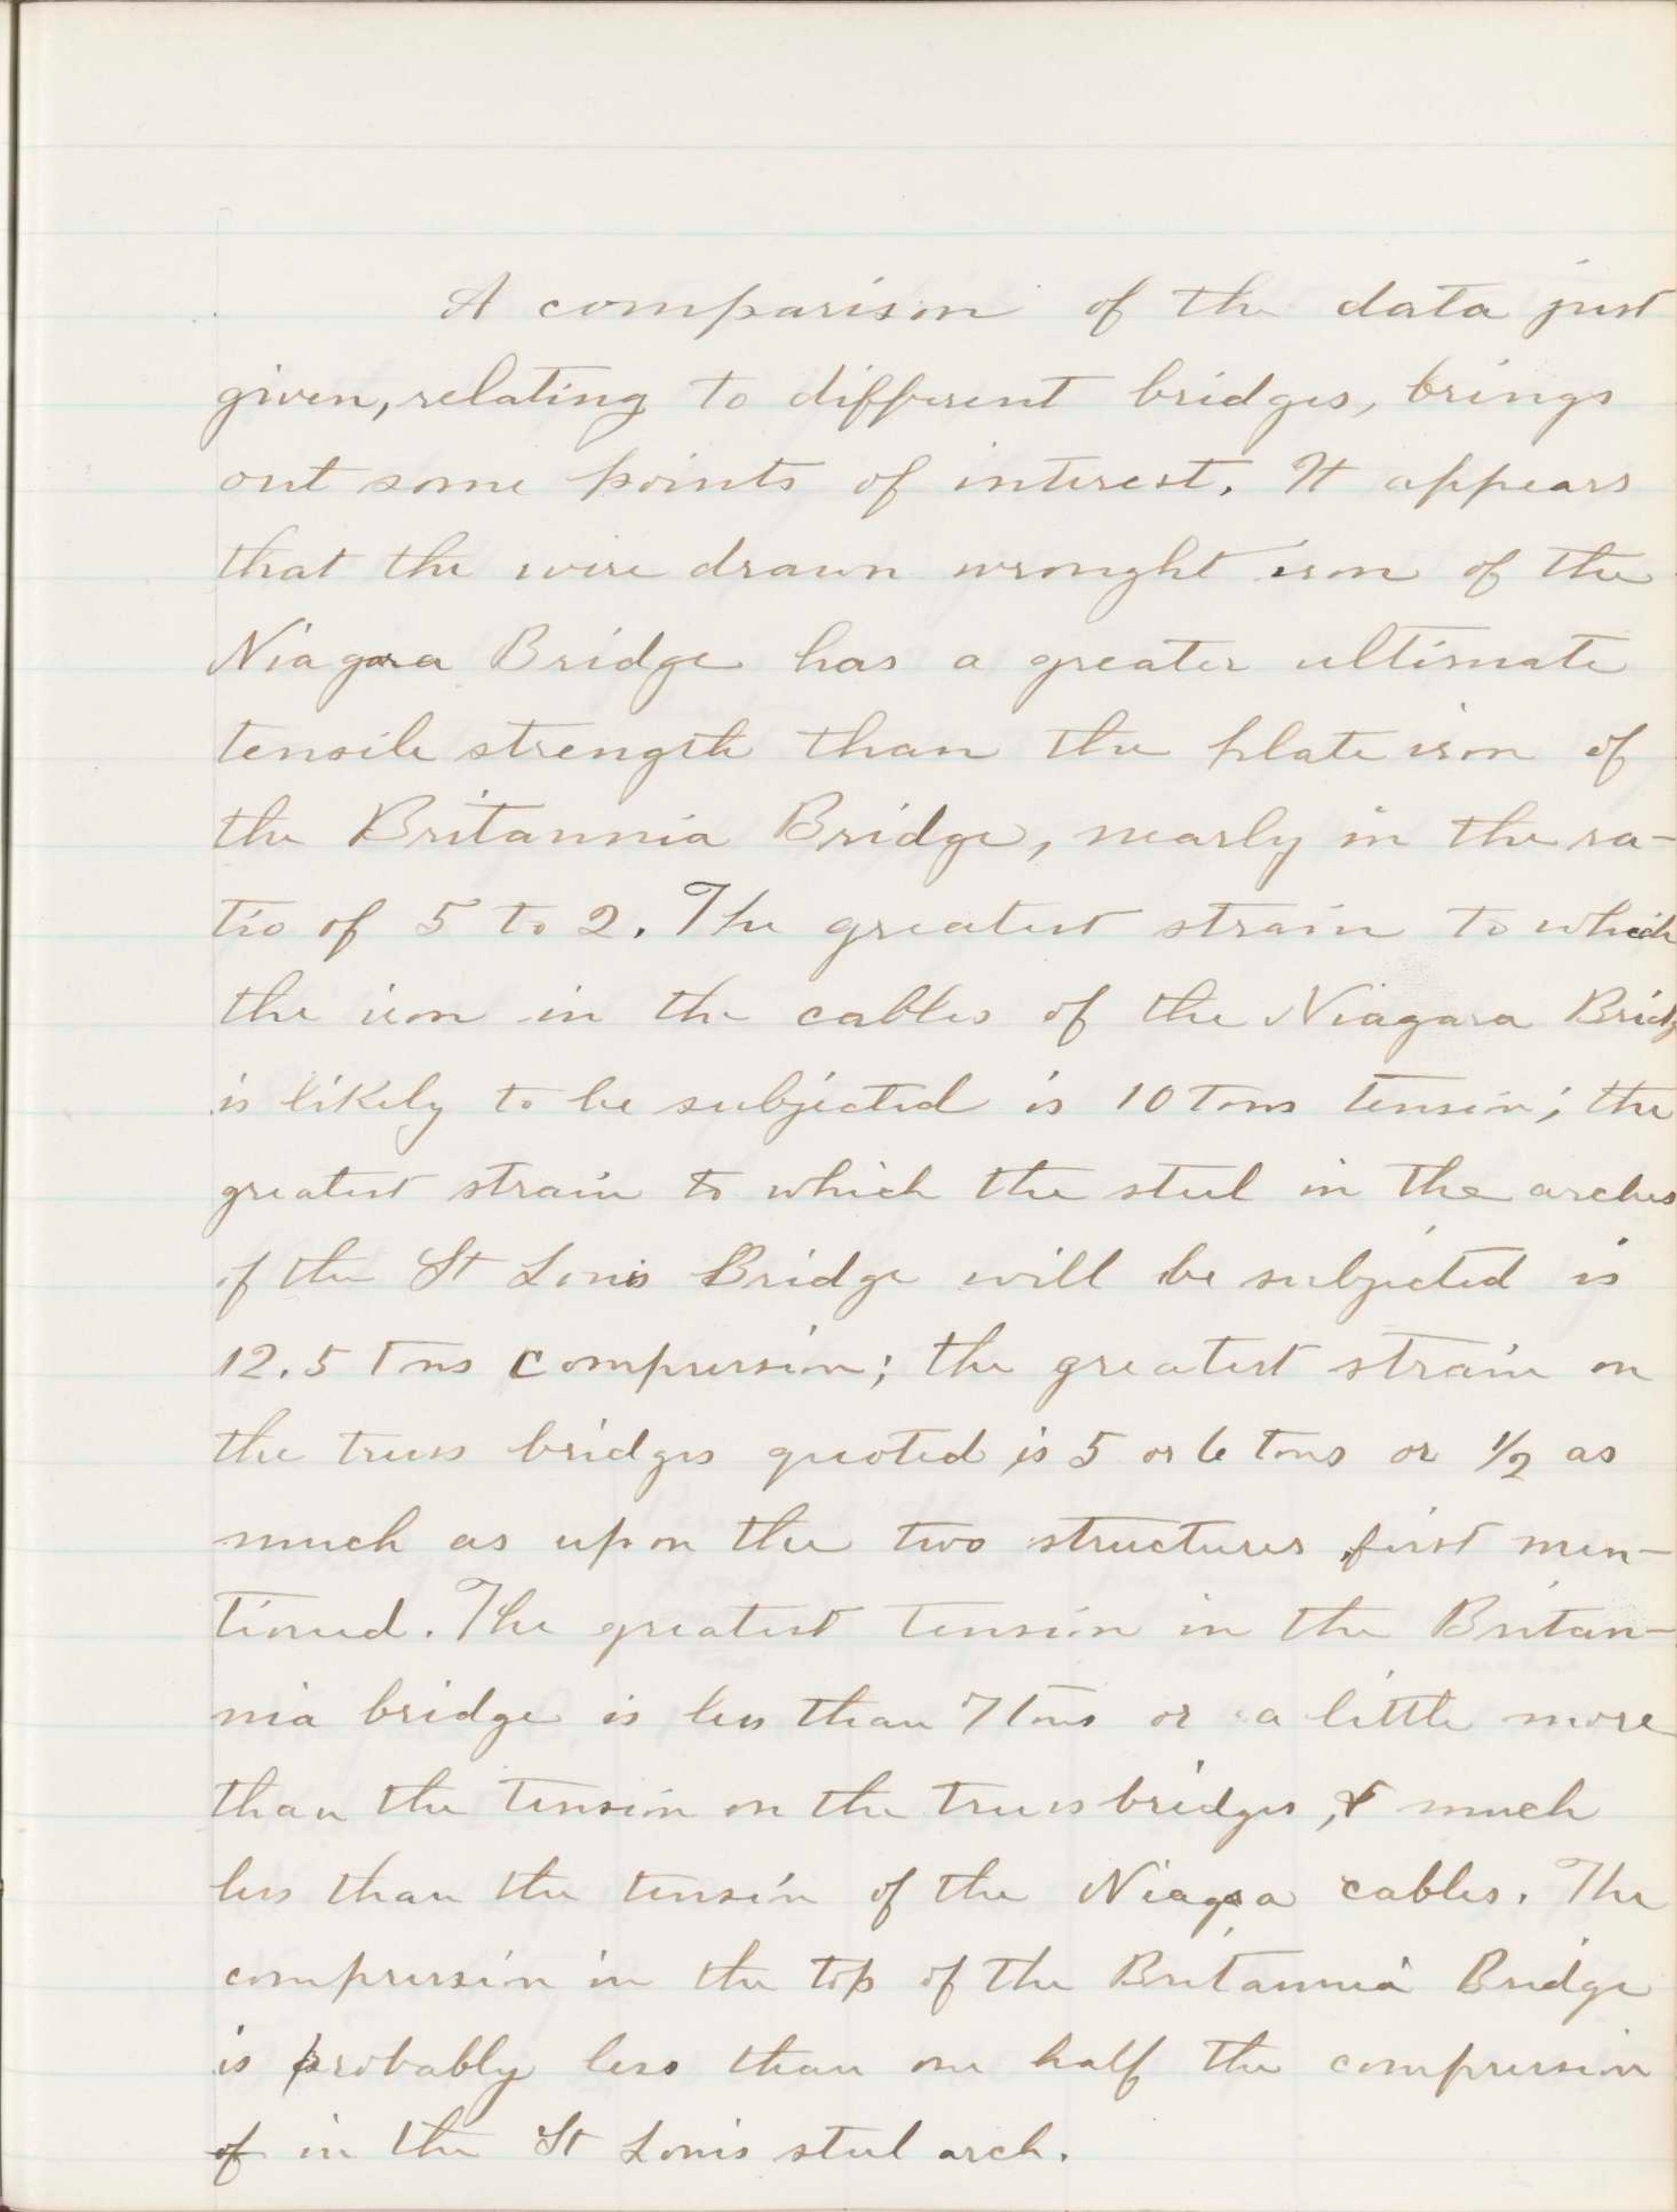 A comparison of the data just
given, relating to different bridges, brings
out some points of interest. It appears
that the wire drawn wrought iron of the
Niagara Bridge has a greater ultimate
tensile strength than the plate iron of
the Britannia Bridge, nearly in the ra-
tio of 5 to 2. The greatest strain to which
the iron in the cables of the Niagara Bridg
is likely to be subjected is 10 tons tension; the
greatest strain to which the steel in the arches
of the St Louis Bridge will be subjected is
12.5 Tons compression; the greatest strain on
the truss bridges quoted is 5 or 6 tons or 1/2 as
much as upon the two structures first men-
tioned. The greatest tension in the Britan-
nia bridge is less than 7 tons or a little more
than the tension on the truss bridges, & much
less than the tension of the Niagra cables. The
compression in the top of the Britannia Bridge
is probably less than one half the compression
of in the St Louis steel arch.